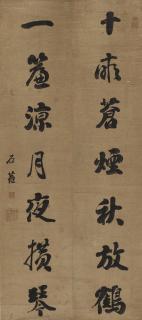 十畝蒼煙秋放鶴
一簾涼月夜橫琴
石菴